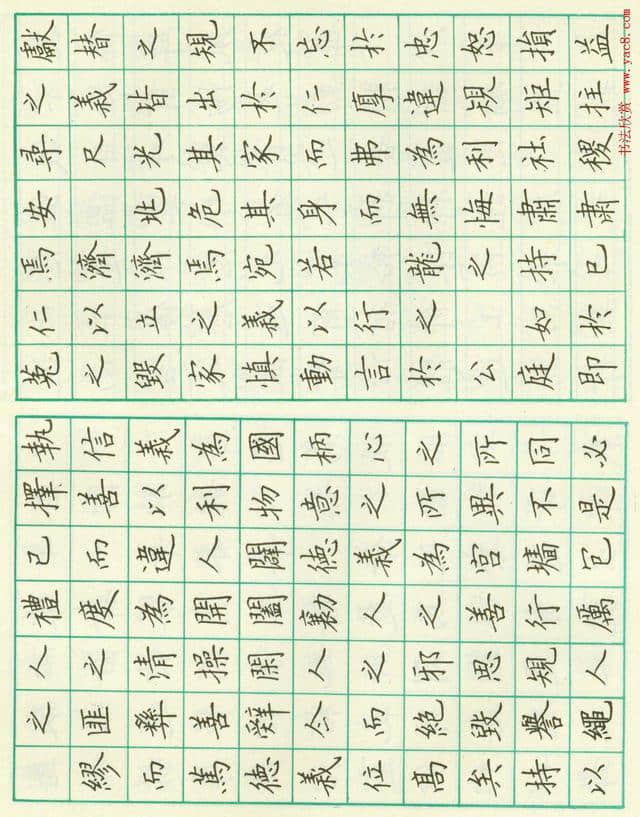 獻替之規不忘於忠恕損益
之義皆出於仁厚違規矩拄
尋尺光其家而弗為利社稷
安兆危其身而無悔肅肅
焉濟濟焉宛若龍之持已
仁以立之義以行之如於
菟之毀家慎動言於公庭即
執信義為國柄心之所同必
擇善以利物意之所異不是
己而違人闢德義為宮墻冦
禮度為開闔勸人之善行厲
人之清操閑人之邪思規人
之匪彝善辭令而絕毀譽繩
繆而篤德義位高矣持以
书法欣赏 www.yac8.com